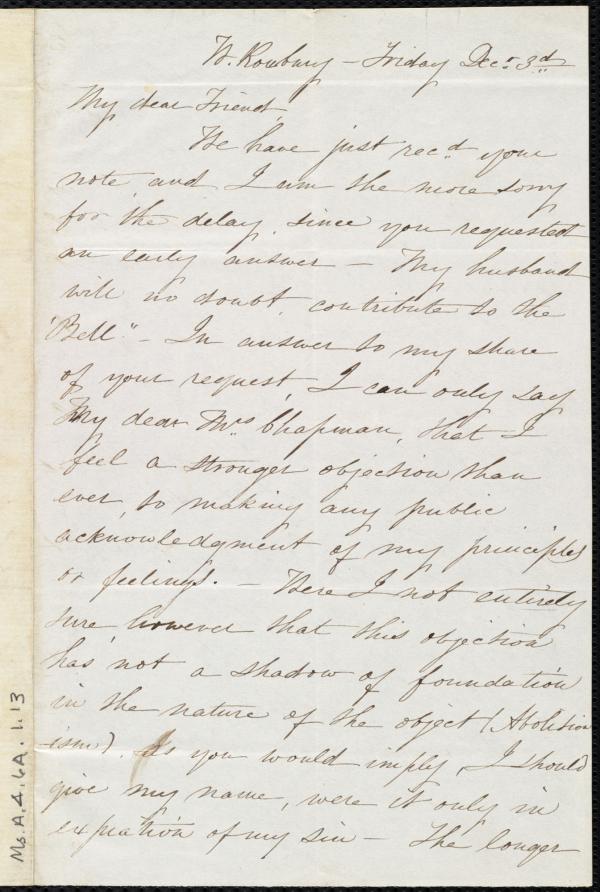 W. Roxbury – Friday Decr. 3d
My dear Friend,
We have just rec.d your
note, and I am the more sorry
for the delay, since you requested
an early answer – My husband
will no doubt contribute to the
"Bell" – In answer to my share
of your request, I can only say
My dear Mrs Chapman, that I
feel a stronger objection than
ever, to making any public
acknowledgment of my principles
or feelings. – Were I not entirely
sure however that this objection
has not a shadow of foundation
in the nature of the object (Abolition
ism). as you would imply, I should
give my name, were it only in
expiation of my sin – The longer
Ms. A. 4. 6A. 1. 13